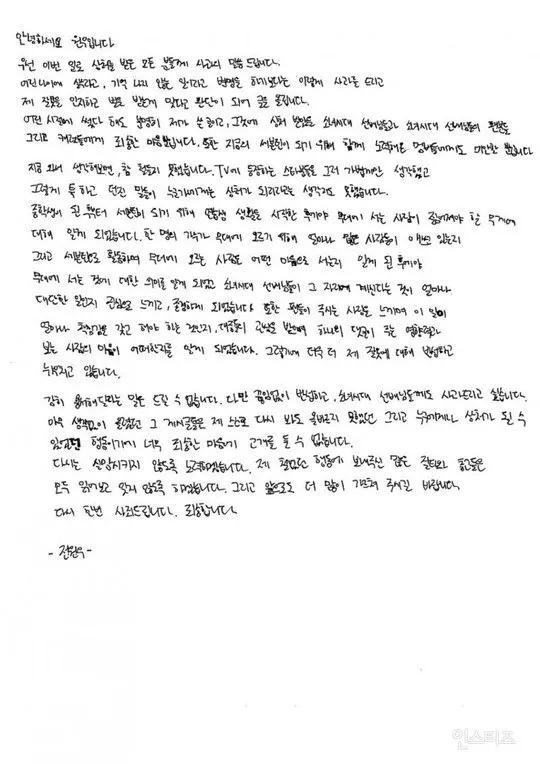 안녕하세요 원우입니다
우선 이번 일로 상처를 받은 모든 분들께 사과의 말씀 드립니다.
어린나이에 썼다고, 기억 나지 않는 일이라고 변명을 하기보다는 이렇게 사과를 드리고
제 잘못을 인지하고 벌도 받는게 맞다고 판단이 되어 글을 올립니다.
어린 시절에 썼다 해도 분명히 제가 쓴 글이고, 그것에 상처 받았을 소녀시대 선배님들과 소녀시대 선배님들의 팬분들
그리고 캐럿들에게 죄송한 마음뿐입니다. 또한 지금의 세븐틴이 되기 위해 함께 노력해온 멤버들에게도 미안할 뿐입니다
지금 와서 생각해보면, 참 철들지 못했습니다. TV에 등장하는 스타님들을 그저 가볍게만 생각했고
그렇게 툭하고 던진 말들이 누군가에게는 상처가 되리라고는 생각지도 못했습니다.
중학생이 된 후부터 세븐틴이 되기 위해 연습생 생활을 시작한 후에야 무대에 서는 사람이 짊어져야 할 무게에
대해 알게 되었습니다. 한 명의 가수가 무대에 오르기 위해 얼마나 많은 사람들이 애쓰고 있는지
그리고 세븐틴으로 활동하며 무대에 오르는 사람은 어떤 마음으로 서는지 알게 된 후에야
무대에 서는 것에 대한 의미를 알게 되었고 소녀시대 선배님들이 그 자리에 계신다는 것이 얼마나
대단한 일인지 진심으로 느끼고, 존경하게 되었습니다 또한 팬들이 주시는 사랑을 느끼며 이 일이
얼마나 책임감을 갖고 해야 하는 것인지, 대중들의 관심을 받으며 하나의 댓글이 주는 영향력과
보는 사람의 마음이 어떠한지를 알게 되었습니다. 그렇기에 더욱 더 제 잘못에 대해 반성하고
뉘우치고 있습니다.
감히 용서해달라는 말은 드릴 수 없습니다. 다만 끊임없이 반성하고, 소녀시대 선배님들께도 사과드리고 싶습니다.
아무 생각없이 올렸던 그 게시글들은 제 스스로 다시 봐도 올바르지 못했던 그리고 누군에게나 상처가 될 수
있었던 행동이기에 너무 죄송한 마음에 고개를 들 수 없습니다.
다시는 실망시키지 않도록 노력하겠습니다. 제 철없던 행동에 보내주신 많은 질타와 충고들은
모두 읽어보고 잊지 않도록 하겠습니다. 그리고 앞으로도 더 많이 가르쳐 주시길 바랍니다.
다시 한번 사죄드립니다. 죄송합니다.
- 전원우 -
인스티즈